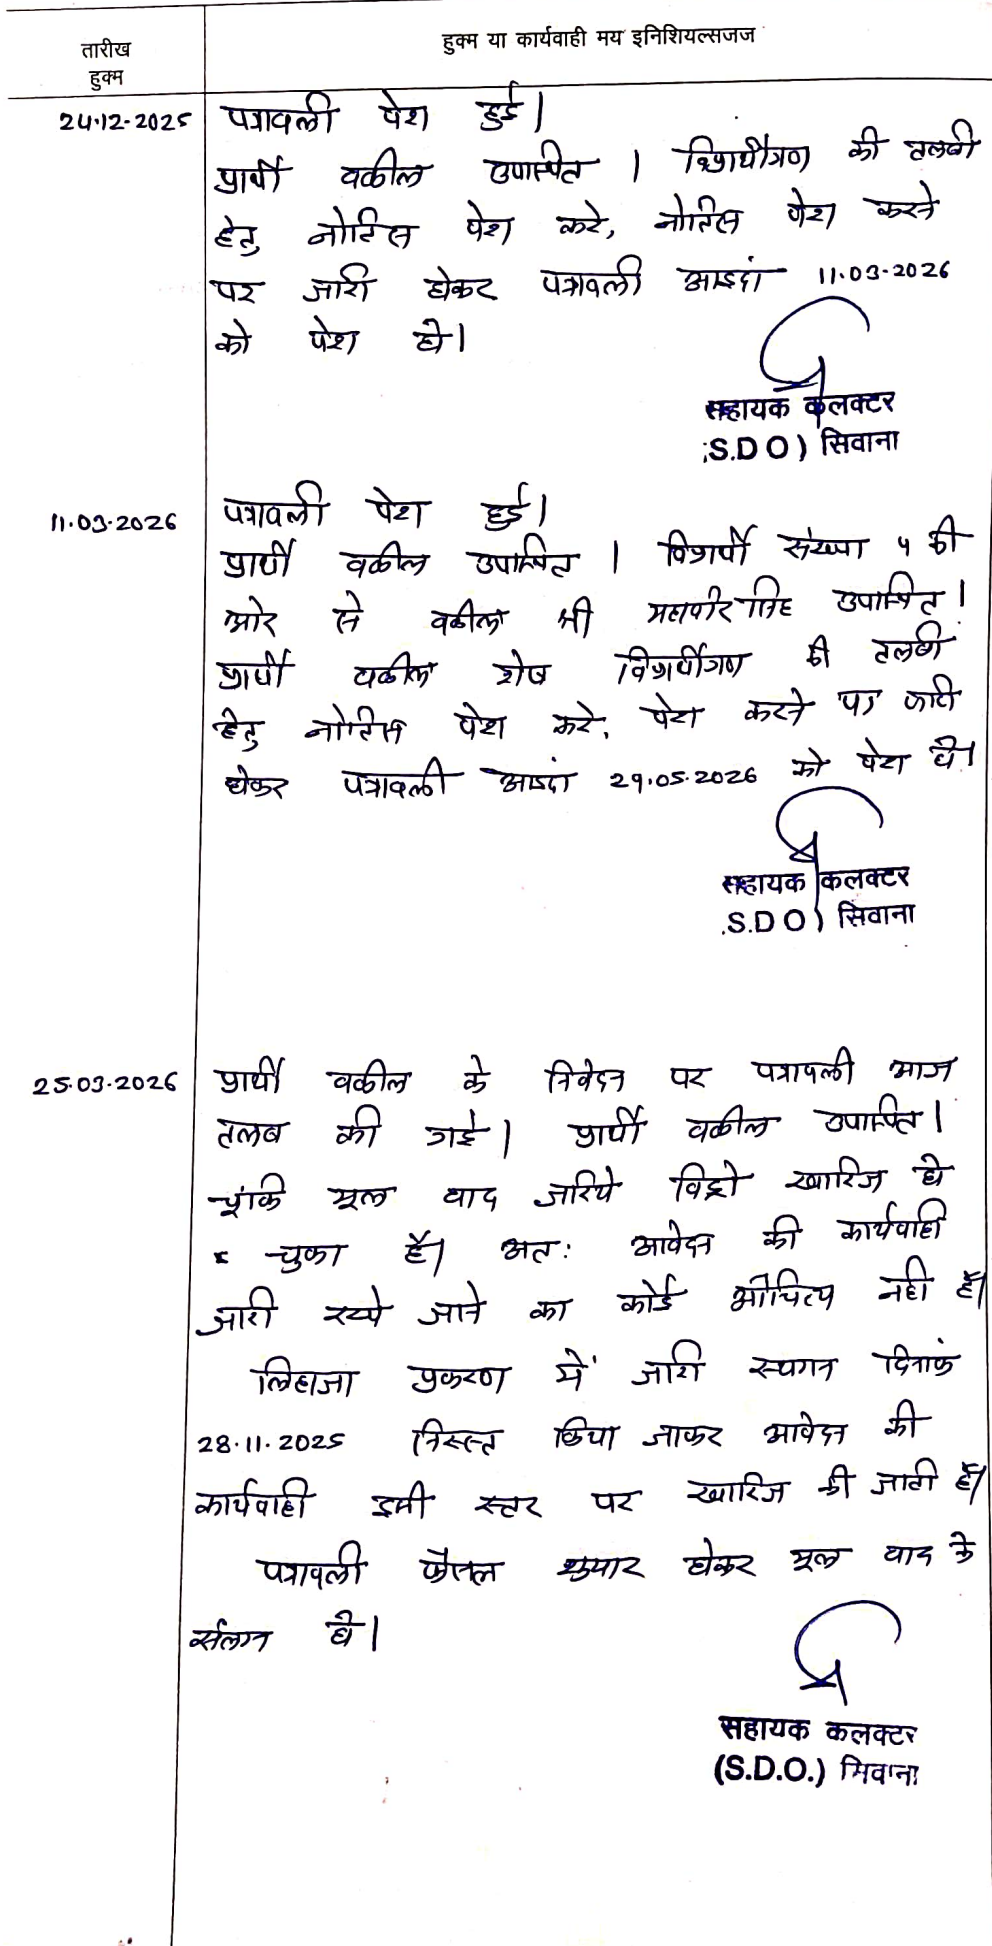 तारीख
हुक्म
हुक्म या कार्यवाही मय इनिशियल्सजज
24.12.2025 पत्रावली पेश हुई।
प्रार्थी वकील उपस्थित । विप्रार्थीगण की तलबी
हेतु नोटिस पेश करे, नोटिस पेश करने
पर जारी होकर पत्रावली आइंदा 11.03.2026
को पेश हो।
सहायक कलक्टर
(S.D O) सिवाना
11.03.2026 पत्रावली पेश हुई।
प्रार्थी वकील उपस्थित । विप्रार्थी संख्या 5 की
ओर से वकील श्री महावीर सिंह उपस्थित।
प्रार्थी वकील शेष विप्रार्थीगण की तलबी
हेतु नोटिस पेश करे, पेश करने पर जारी
होकर पत्रावली आइंदा 29.05.2026 को पेश हो।
सहायक कलक्टर
(S.D O) सिवाना
25.03.2026 प्रार्थी वकील के निवेदन पर पत्रावली आज
तलब की गई। प्रार्थी वकील उपस्थित।
चूंकि मूल वाद जरिये विड्रो खारिज हो
चुका है। अतः आवेदन की कार्यवाही
जारी रख्ये जाने का कोई औचित्य नही है।
लिहाजा प्रकरण में जारी स्थगन दिनांक
28.11.2025 निरस्त किया जाकर आवेदन की
कार्यवाही इसी स्तर पर खारिज की जाती है।
पत्रावली फैसल शुमार होकर मूल वाद के
संलग्न हो।
सहायक कलक्टर
(S.D.O.) सिवाना